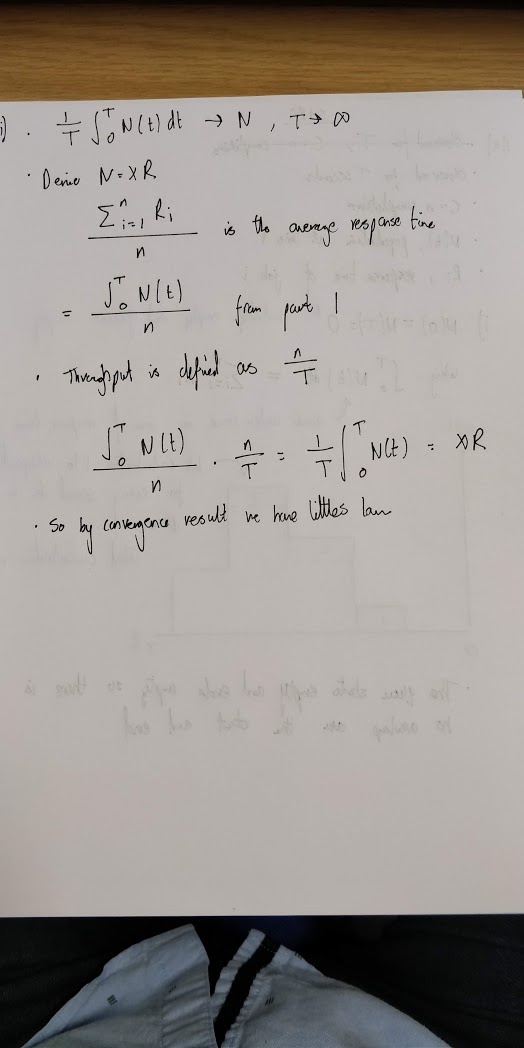 i) · 1/T ∫₀ᵀ N(t) dt → N , T → ∞
· Derive N = XR
∑ⁿᵢ₌₁ Rᵢ / n is the average response time
= ∫₀ᵀ N(t) / n from part 1
· Throughput is defined as n/T
∫₀ᵀ N(t) / n · n/T = 1/T ∫₀ᵀ N(t) = XR
· So by convergence result we have littles law